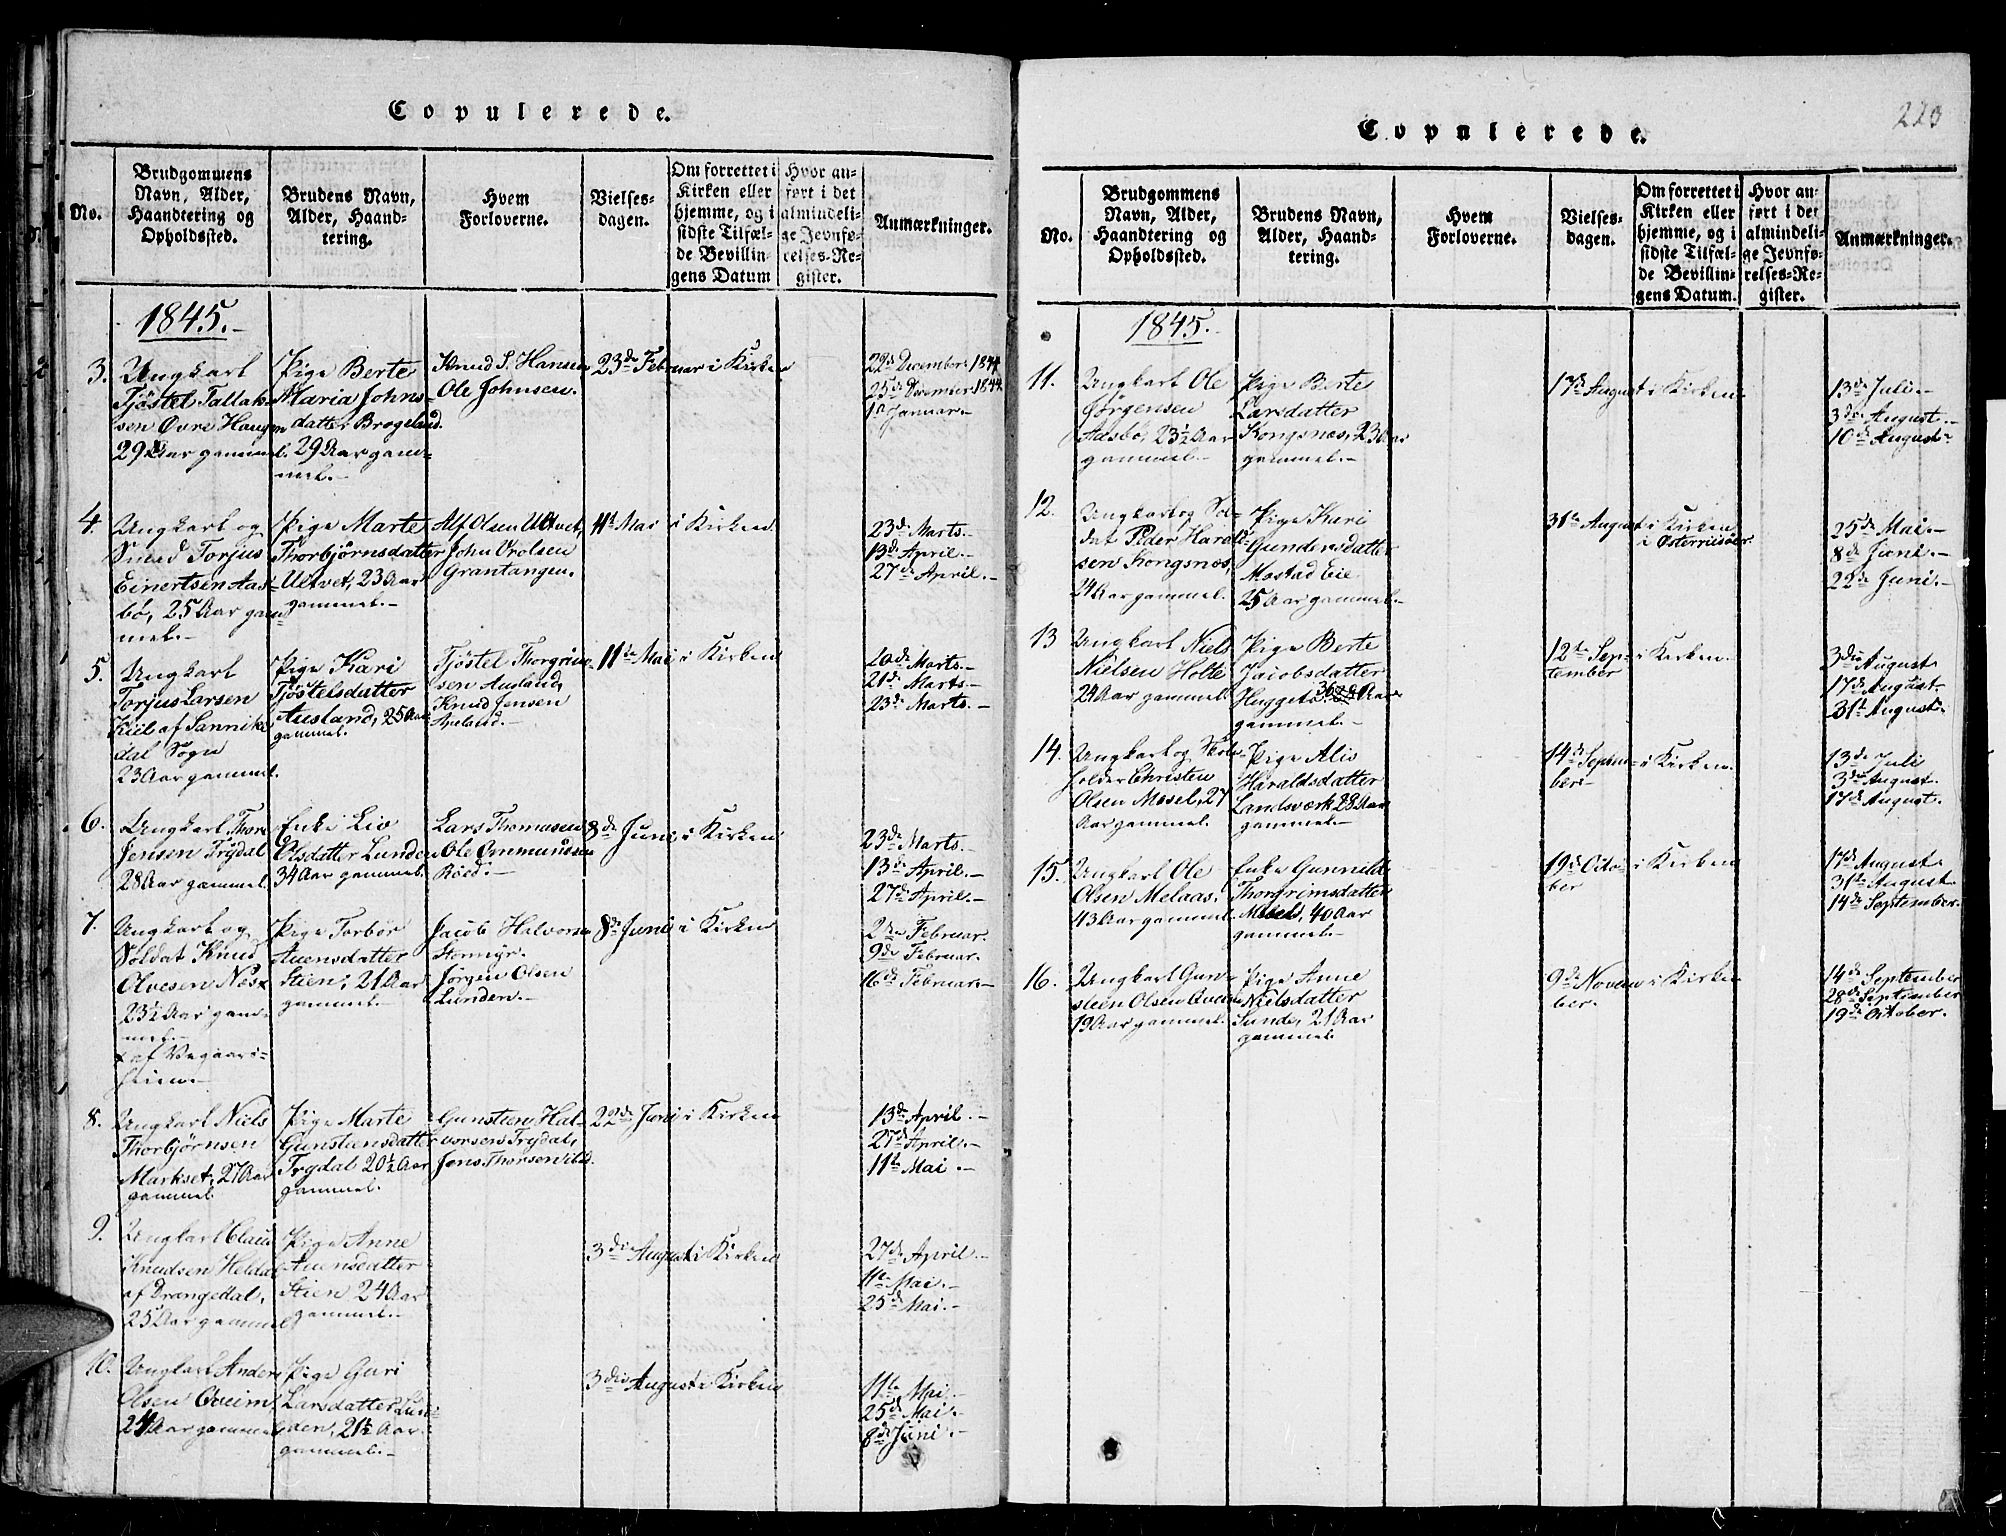 Copulerede.
No.
Brudgommens
Navn, Alder,
Haandtering og
Opholdssted.
Brudens Navn,
Alder, Haand-
tering.
Hvem
Forloverne.
Vielses-
dagen.
Om forrettet i
Kirken eller
hjemme, og i
sidste Tilfæl-
de Bevillin-
gens Datum
Hvor an-
ført i det
almindeli-
ge Jevnfø-
relses-Re-
gister.
Anmærkninger.
1845.-
3.
Ungkarl
Tjøstel Tallak-
sen Øvre Haugen
29 Aar gammel
Pige Berte
Maria Johns-
datter Brøgeland.
29 Aar gam-
mel.-
Knud S. Hansen
Ole Johnsen.
23de Februar i Kirken
22de December 1844
25de December 1844.
1ste Januar.-
4.
Ungkarl og
Smed Torjus
Einertsen Aas-
bø, 25 Aar gam-
mel.-
Pige Marte
Thorbjørnsdatter
Ultvet, 23 Aar
gammel.-
Alf Olsen Ultvet,
John Orolsen
Grantangen.
11te Mai i Kirken
23de Marts.-
13de April.-
27de April.-
5.
Ungkarl
Torjus Larsen
Kiil af Sannike
dal Sogn
23 Aar gammel.
Pige Kari
Tjøstelsdatter
Ausland, 25 Aar
gammel.
Tjøstel Thorgrim-
sen Ausland,
Knud Jensen
11te Mai i Kirken
20de Marts.-
21de Marts.-
23de Marts.-
6.
Ungkarl Thore
Jensen Trydal
28 Aar gammel.
Enke Liv
Olsdatter Lunden
34 Aar gammel.
Lars Thomasen
Ole Ommundsen
Röed.-
8de Juni i Kirken
23de Marts.-
13de April.-
27de April.-
7.
Ungkarl og
Soldat Knud
Olvesen Næs x
23½ Aar gam-
mel.-
x af Vegaars-
heien.-
Pige Torbør
Auensdatter
Stien, 21 Aar
gammel.-
Jacob Halvorsen
Stormyr.
Jørgen Olsen
Lunden.-
8de Juni i Kirken
2den Februar.
9de Februar.
16de Februar.-
8.
Ungkarl Niels
Thorbjørnsen
Markset, 27 Aar
gammel
Pige Marte
Gunstensdatter
Trydal 20½ Aar
gammel.
Gunstien Hal-
vorsen Trydal,
Jens Thorsen
22de Juni i Kirken
13de April.-
27de April.-
11te Mai.-
9.
Ungkarl Claus
Knudsen Heldal
af Drangedal,
25 Aar gammel
Pige Anne
Auensdatter
Stien 24 Aar
gammel.-
3die August i Kirken
27de April.-
11te Mai.-
25de Mai.-
10.
Ungkarl Anders
Olsen Qveim,
24 Aar gammel
Pige Guri
Larsdatter Lun-
den, 21½ Aar
gammel.-
3die August i Kirken
11te Mai.-
25de Mai.-
8de Juni.-
223
Copulerede.
No.
Brudgommens
Navn, Alder,
Haandtering og
Opholdssted.
Brudens Navn,
Alder, Haand-
tering.
Hvem
Forloverne.
Vielses-
dagen.
Om forrettet i
Kirken eller
hjemme, og i
sidste Tilfæl-
de Bevillin-
gens Datum.
Hvor an-
ført i det
almindeli-
ge Jevnfø-
relses-Re-
gister.
Anmærkninger.
1845.
11.
Ungkarl Ole
Jørgensen
Aasbø, 23½ Aar
gammel.-
Pige Berte
Larsdatter
Kongsnæs, 23 Aar
gammel.-
17de August i Kirken
13de Juli.-
3die August.-
10de August.-
12.
Ungkarl og Sol-
dat Peder Harald-
sen Kongsnæs,
24 Aar gammel.
Pige Kari
Gundersdatter
Mostad Eie
25 Aar gammel.-
31te August i Kirken
i Österriisöer
25de Mai.-
8de Juni.-
22de Juni.-
13
Ungkarl Niels
Nielsen Holte
24 Aar gammel.
Pige Berte
Jacobsdatter
Huggetö, 36 Aar
gammel.-
12te Sep-
tember
i Kirken.
3die August.
17de August.
31te August.
14.
Ungkarl og Skole-
holder Christen
Olsen Mosel, 27
Aar gammel.
Pige Alis
Haraldsdatter
Landsværk 28 Aar
gammel.-
14de Septem-
ber
i Kirken.
13de Juli
3die August.
17de August.
15.
Ungkarl Ole
Olsen Melaas,
43 Aar gammel.
Enke Gunnild
Thorgrimsdatter
Mosel, 40 Aar
gammel.-
19de Octo-
ber
i Kirken
17de August.
31te August.
14de September.
16.
Ungkarl Gun-
steen Olsen Qveim
19 Aar gammel.
Pige Anne
Nielsdatter
Sunde, 21 Aar
gammel
9de Novem-
ber.
i Kirken
14de September
28de September
19de October.